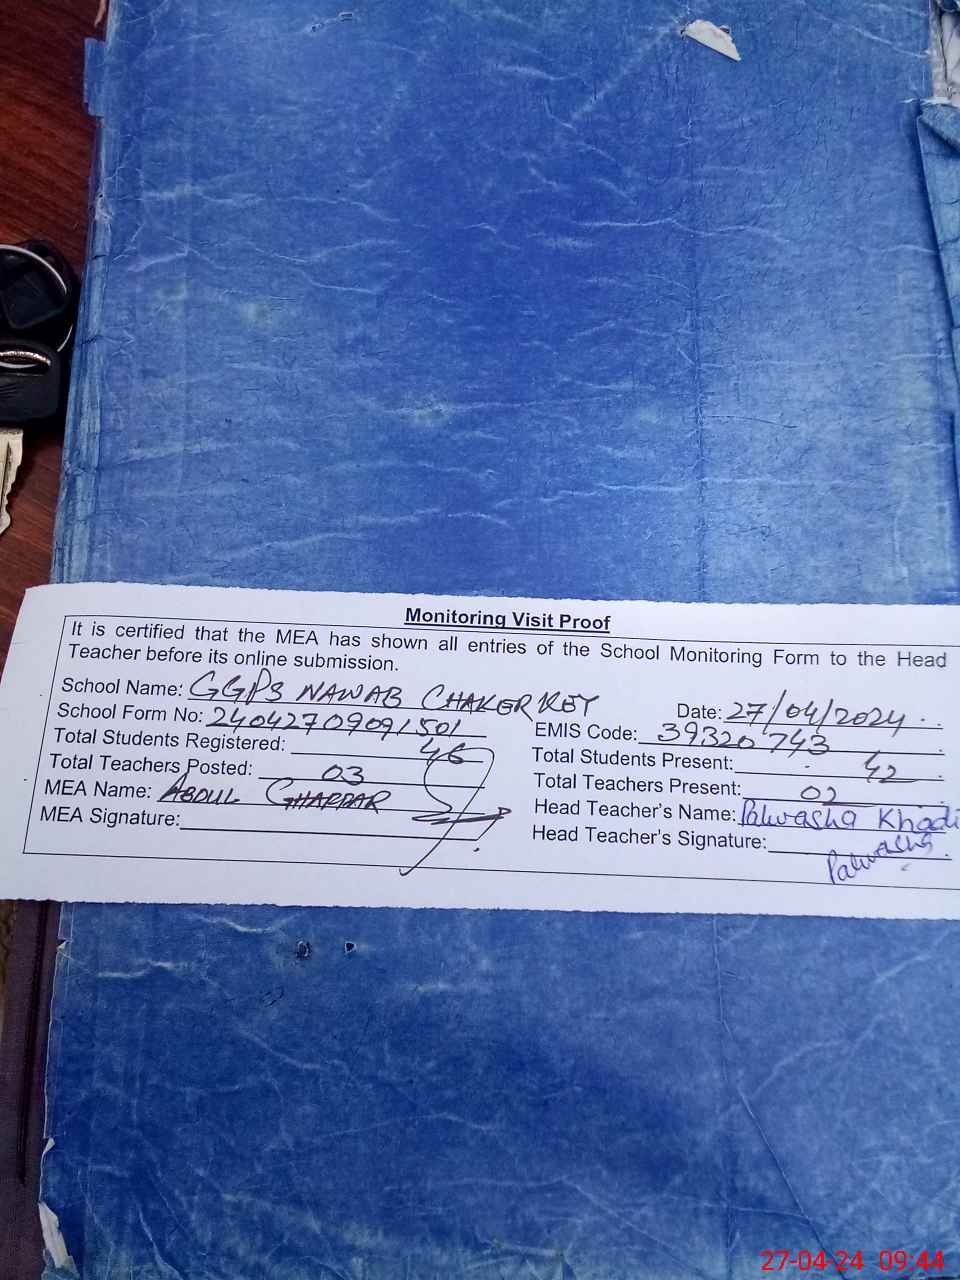 Monitoring Visit Proof
It is certified that the MEA has shown all entries of the School Monitoring Form to the Head
Teacher before its online submission.
School Name: GGPS NAWAB CHAKER KET Date: 27/04/2024
School Form No: 24042709091501 EMIS Code: 39320743
Total Students Registered: 46 Total Students Present: 42
Total Teachers Posted: 03 Total Teachers Present: 02
MEA Name: ABDUL GHAFFAR Head Teacher's Name: Palwasha Khadi
MEA Signature: Head Teacher's Signature: Palwasha
27-04-24 09:44